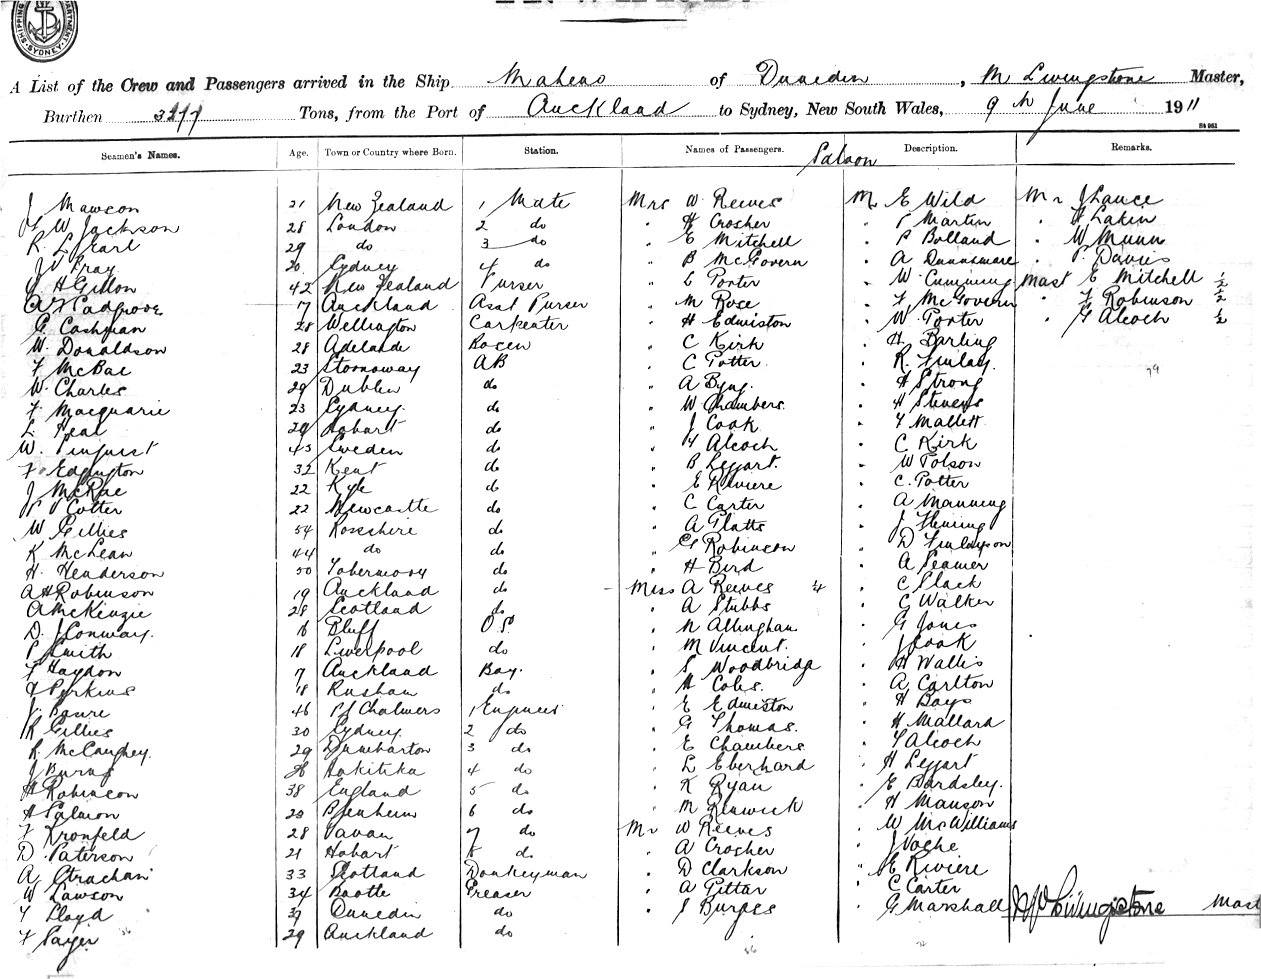 SHIPPING DEPARTMENT SYDNEY
A List of the Crew and Passengers arrived in the Ship Maheno of Dunedin, M Livingstone Master,
Burthen Tons, from the Port of Auckland to Sydney, New South Wales, 9th June 1911
St 961
Seamen's Names. Age. Town or Country where Born. Station. Names of Passengers. Description. Remarks.
Saloon
J Mawson 21 New Zealand 1 Mate Mrs W Reeves Mr E Wild Mr J Lance
W Jackson 28 London 2 do " H Crosher " Martin " H Lakin
R L Pearl 29 do 3 do " E Mitchell " P Bolland " W Munn
Gray 20 Sydney 4 do " B McGovern " A Dunnsmare " Davies
J H Gibbon 42 New Zealand Purser " L Porter " W Cumming Mast E Mitchell ½
17 Auckland Asst Purser " M Rose " F McGovern " F Robinson ½
G Cashman 28 Wellington Carpenter " H Edmiston " W Porter " G Alcoch ½
W Donaldson 28 Adelaide Bosen " C Kirk " H Barling
F McBae 23 Stornoway AB " C Potter " R. Finlay.
W Charles 29 Dublin do " A Byng. " H Strong
F Macquarie 23 Sydney. do " W Chambers. " H Stevens
L Pearl 29 Hobart do " J Cook " Y Mallett
W. 43 Sweden do " Y Alcoch " C Kirk
F Edgington 32 Kent do " B Leggart. " W Tolson
J McRae 22 Kyle do " E Riviere " C. Potter
Cotter 22 Newcastle do " C Carter " A Manning
W Gillies 54 Rosshire do " A Platts " J Fleming
K McLean 44 do do " G Robinson " D Finlayson
H. Henderson 50 Tobermory do " H Bird " A Seamer
A H Robinson 19 Auckland do Miss A Reeves 4 " C Slack
A McKenzie 28 Scotland do " A Stubbs " G Walker
D. J Conway. 16 Bluff OS " N Allingham " G Jones
P Smith 18 Liverpool do " M Vincent. " J Cook
F Haydon 17 Auckland Boy. " S Woodbridge " H Wallis
Perkins 18 Rusham do " H Coles. " A Carlton
46 Pt Chalmers 1 Engineer " E Edmiston " H Bays
R Gillies 30 Sydney 2 do " G Thomas. " H Mallard
R McCaughey. 29 Dumbarton 3 do " E Chambers " Y Alcoch
J Burns 26 Hokitika 4 do " L Eberhard " H Leggart
H Robinson 38 England 5 do " K Ryan " E Bardsley.
H Salmon 20 Blenheim 6 do " M Renwick " H Manson
F Kronfeld 28 Vavau 7 do Mr W Reeves " W McWilliams
D. Paterson 21 Hobart 8 do " A Crosher " J Vache
A Strachan 33 Scotland Donkeyman " D Clarkson " E Riviere
W Lawson 34 Bootle Greaser " A Pittar " C Carter
Y Lloyd 37 Dunedin do " J Burgess " G Marshall
F Sayer 29 Auckland do
Livingstone Mast